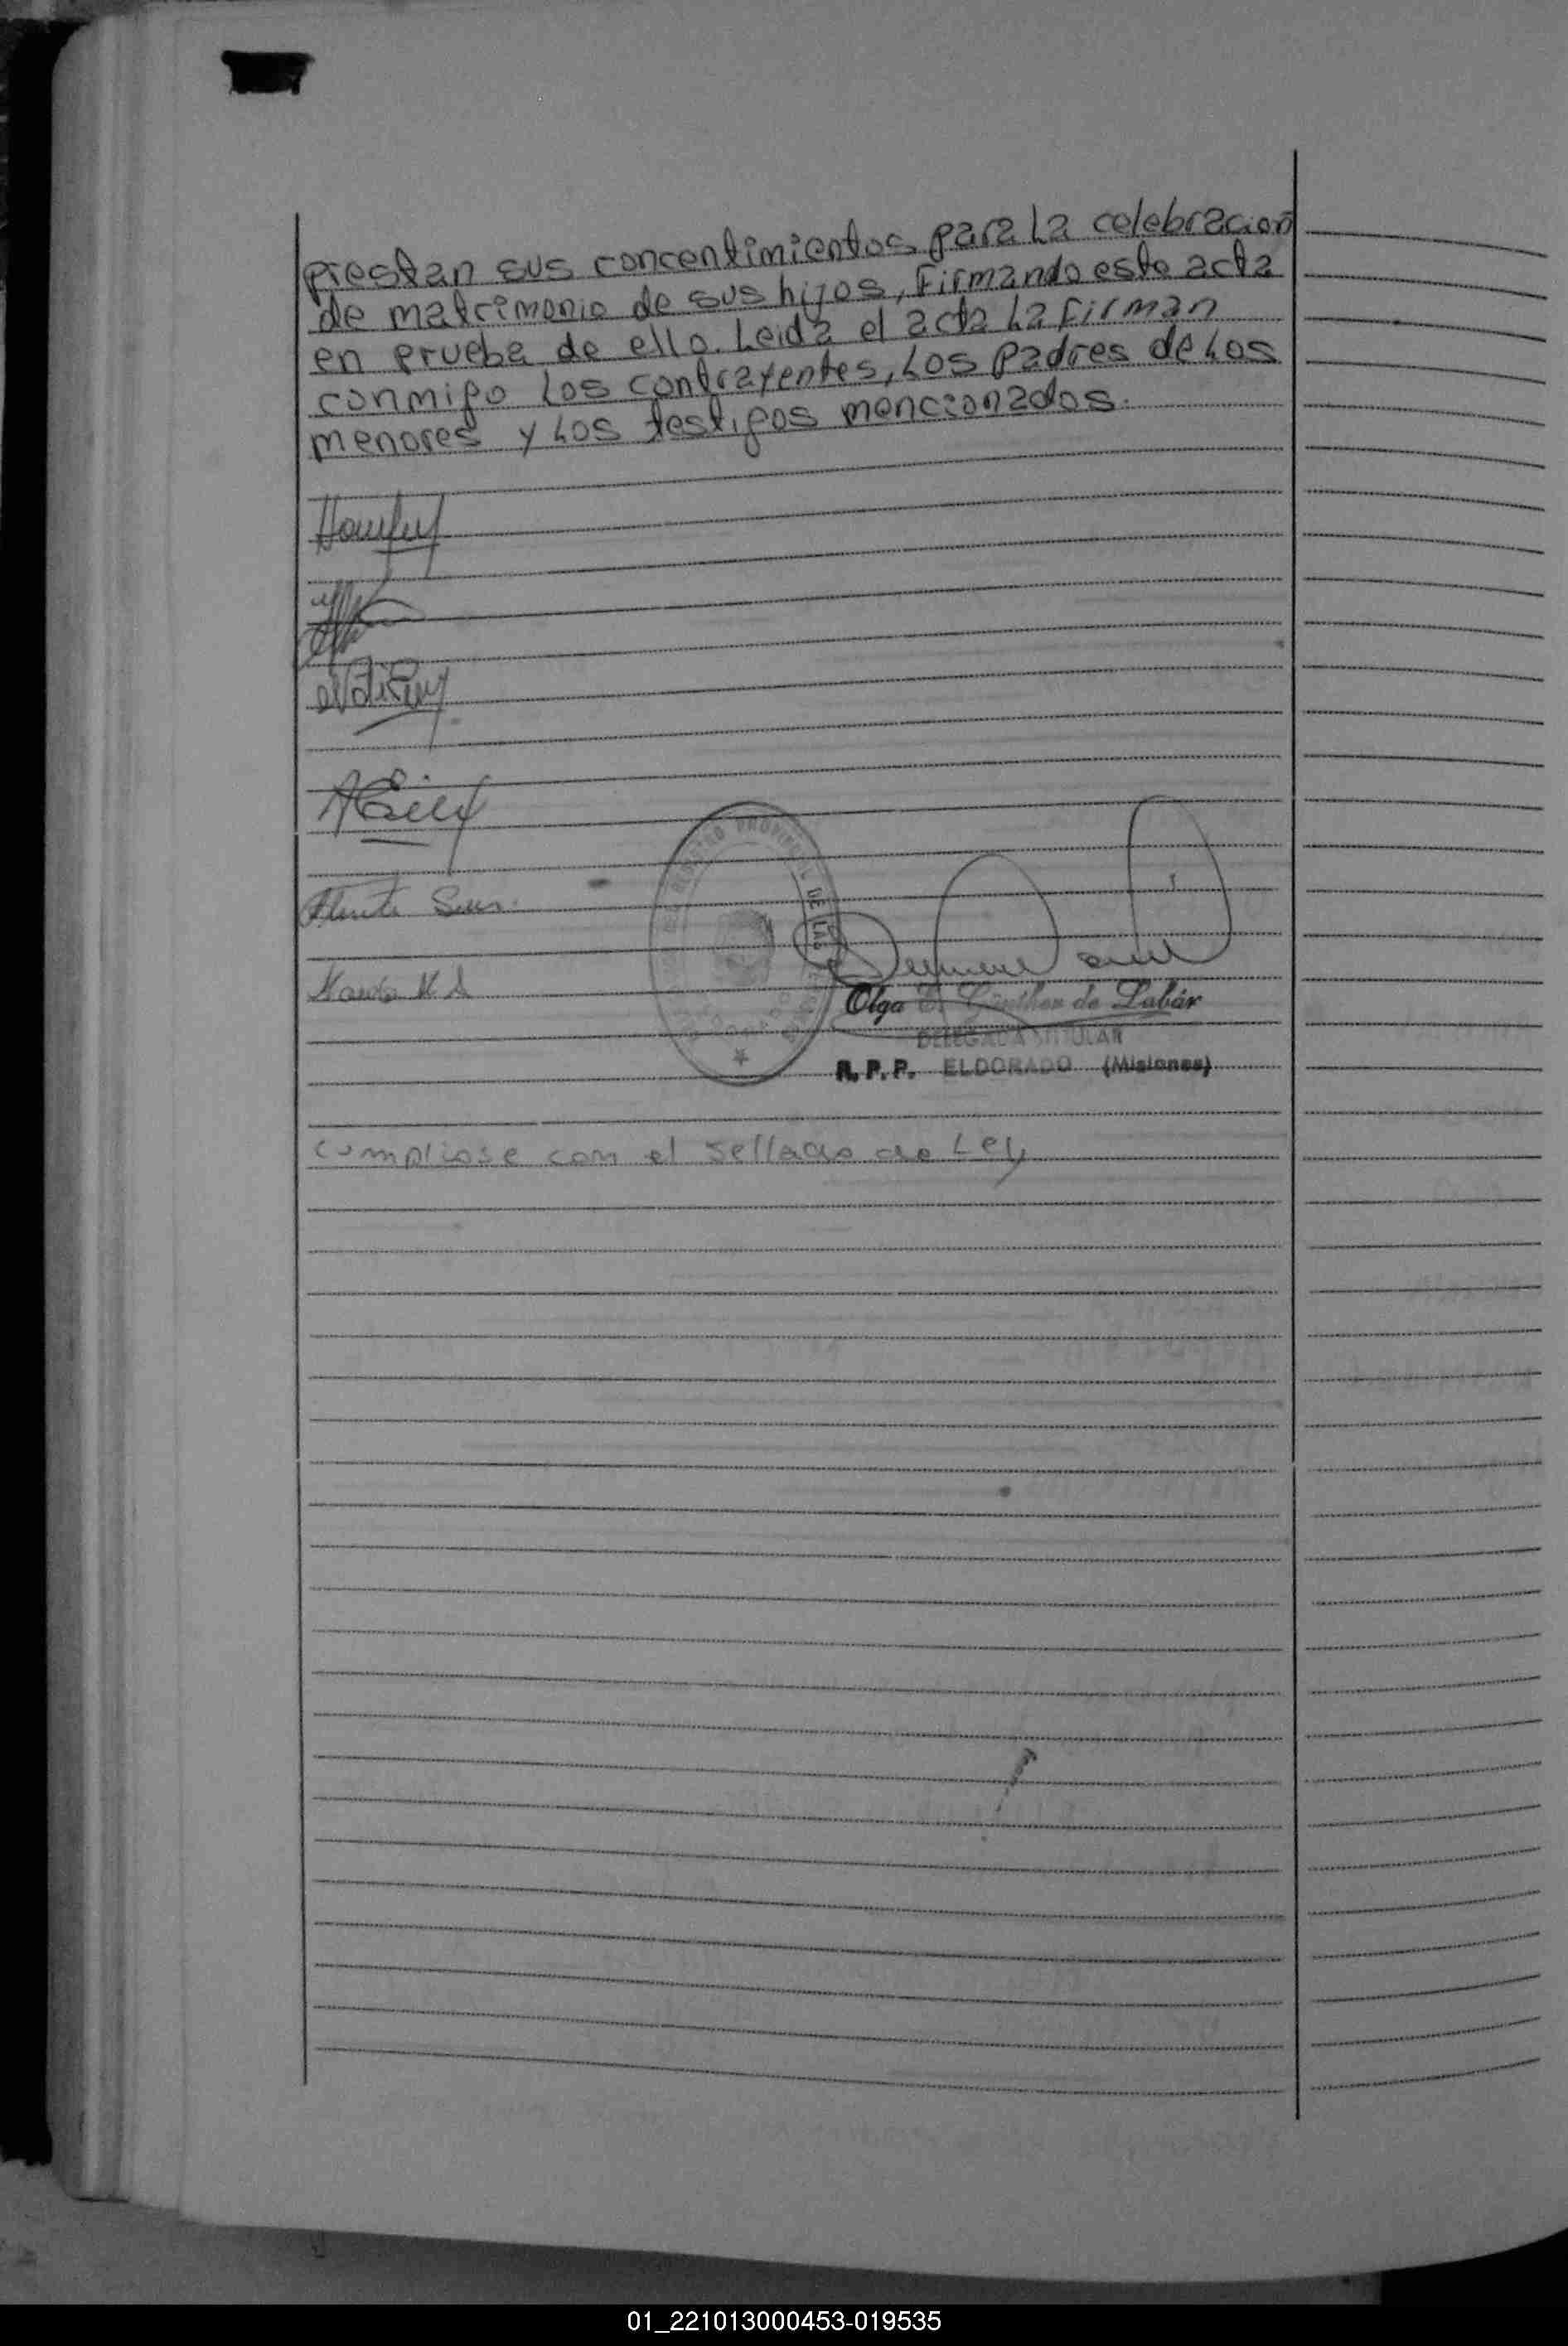 prestan sus concentimientos para La celebracion
de matrimonio de sus hijos, Firmando este acta
en prueba de ello. Leida el acta La Firman
conmigo Los contrayentes, Los padres de Los
menores y Los testigos mencionados.
REGISTRO PROVINCIAL DE LAS
Olga E. Günther de Labár
DELEGADA TITULAR
R. P. P. ELDORADO (Misiones)
cumpliose con el sellado de Ley
01_221013000453-019535